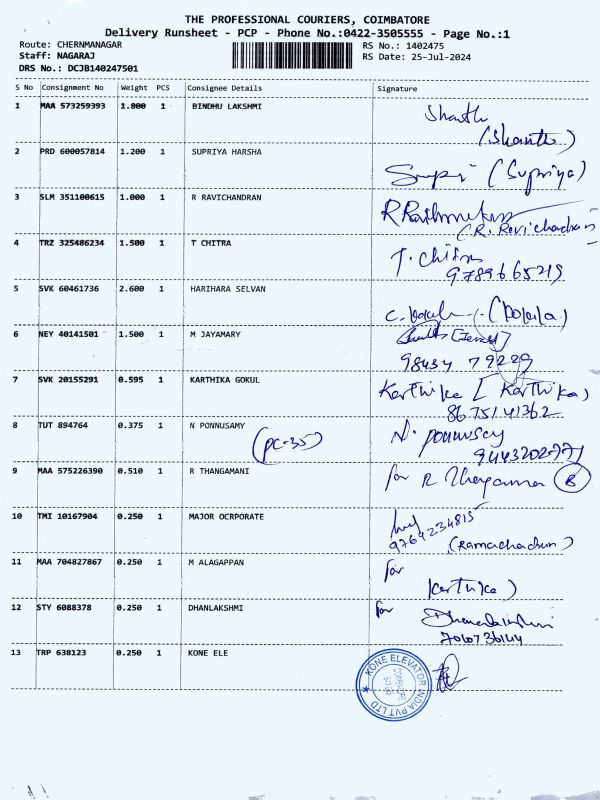 THE PROFESSIONAL COURIERS, COIMBATORE
Delivery Runsheet - PCP - Phone No.:0422-3505555 - Page No.:1
Route: CHERNMANAGAR RS No.: 1402475
Staff: NAGARAJ RS Date: 25-Jul-2024
DRS No.: DCJB140247501
S No Consignment No Weight PCS Consignee Details Signature
1 MAA 573259393 1.800 1 BINDHU LAKSHMI Shanth
(Shanthi)
2 PRD 600057814 1.200 1 SUPRIYA HARSHA
(Supriya)
3 SLM 351100615 1.000 1 R RAVICHANDRAN
(R. Ravichandran)
4 TRZ 325486234 1.500 1 T CHITRA T. Chitra
9789665219
5 SVK 60461736 2.600 1 HARIHARA SELVAN
6 NEY 40141501 1.500 1 M JAYAMARY
98434 79229
7 SVK 20155291 0.595 1 KARTHIKA GOKUL Karthika [Karthika)
8675141362
8 TUT 894764 0.375 1 N PONNUSAMY N. ponnusay
(PC-35)
9 MAA 575226390 0.510 1 R THANGAMANI for R
10 TMI 10167904 0.250 1 MAJOR OCRPORATE
9764234815
(Ramachadran)
11 MAA 704827867 0.250 1 M ALAGAPPAN for
Karthika)
12 STY 6088378 0.250 1 DHANLAKSHMI for
Dhanalakshmi
13 TRP 638123 0.250 1 KONE ELE
KONE ELEVATOR INDIA PVT LTD